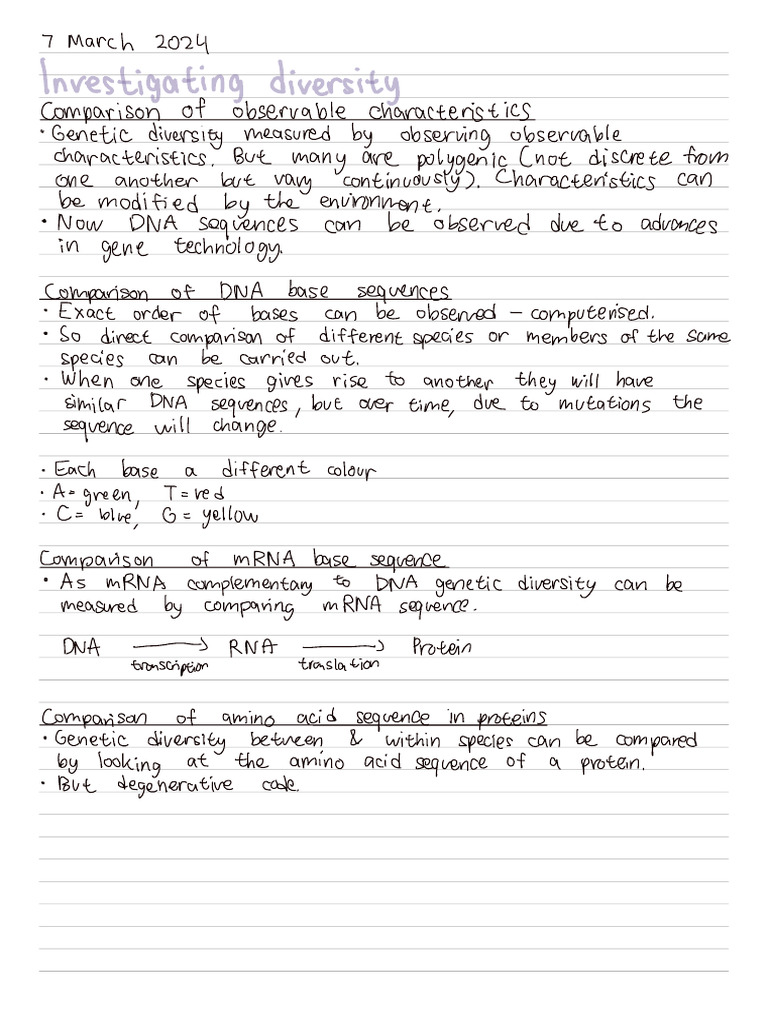 7 March 2024
Investigating diversity
Comparison of observable characteristics
• Genetic diversity measured by observing observable
characteristics. But many are polygenic (not discrete from
one another but vary continuously). Characteristics can
be modified by the environment.
• Now DNA sequences can be observed due to advances
in gene technology.
Comparison of DNA base sequences
• Exact order of bases can be observed – computerised.
• So direct comparison of different species or members of the same
species can be carried out.
• When one species gives rise to another they will have
similar DNA sequences, but over time, due to mutations the
sequence will change.
• Each base a different colour
• A = green, T = red
• C = blue, G = yellow
Comparison of mRNA base sequence
• As mRNA complementary to DNA genetic diversity can be
measured by comparing mRNA sequence.
DNA → RNA → Protein
transcription translation
Comparison of amino acid sequence in proteins
• Genetic diversity between & within species can be compared
by looking at the amino acid sequence of a protein.
• But degenerative code.